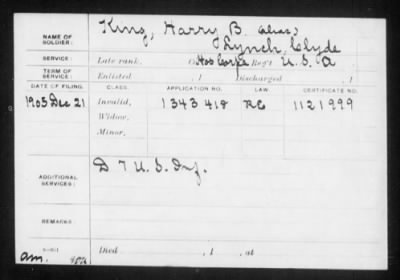 NAME OF SOLDIER: King, Harry B. (alias)
Lynch, Clyde
SERVICE: Late rank, Hos Corps Reg't U. S. A
TERM OF SERVICE: Enlisted , 1 Discharged , 1
DATE OF FILING. CLASS. APPLICATION NO. LAW. CERTIFICATE NO.
1905 Dec 21 Invalid, 1343418 RG 1121999
Widow,
Minor,
ADDITIONAL SERVICES: D 7 U. S. Inf.
REMARKS:
Died , 1 , at
am.